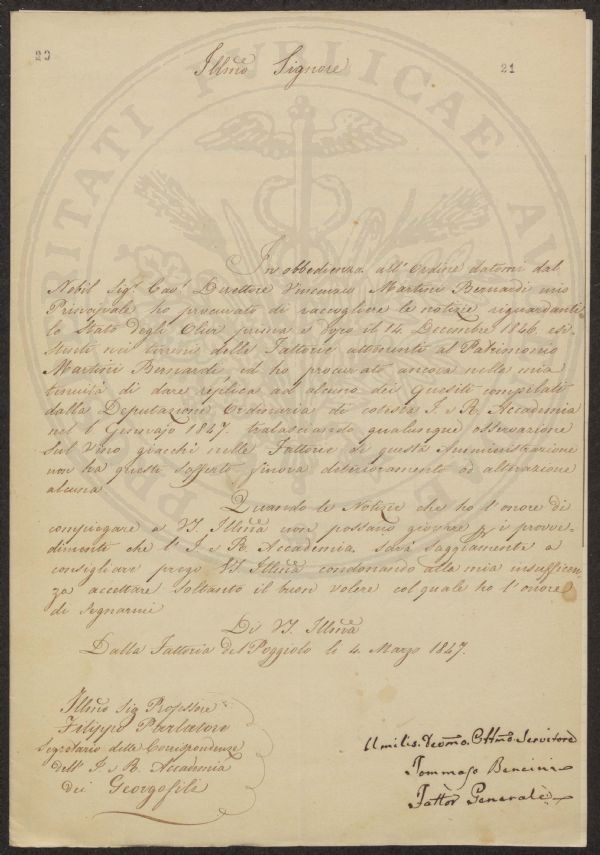 20
21
Illmo Signore
In obbedienza all'Ordine datomi dal
Nobil Sigr. Cavr. Direttore Vincenzio Martini Bernardi mio
Principale ho procurato di raccogliere le notizie riguardanti
lo Stato degli Olivi prima e dopo il 14. Decembre 1846. esi
stenti nei terreni delle Fattorie attenenti al Patrimonio
Martini Bernardi ed ho procurato ancora nella mia
tenuità di dare replica ad alcuno dei Quesiti compilati
dalla Deputazione Ordinaria di cotesta I. e R. Accademia
nel 1 Gennajo 1847. tralasciando qualunque osservazione
sul Vino giacchè nelle Fattorie di questa Amministrazione
non ha questi sofferto finora deterioramento od alterazione
alcuna
Quando le Notizie che ho l'onore di
compiegare a VS. Illma non possano giovare p i provve-
dimenti che l'I. e R. Accademia sarà saggiamente a
consigliare prego VS Illma condonando alla mia insufficen-
za accettare soltanto il buon volere col quale ho l'onore
di segnarmi
Di VS. Illma
Dalla Fattoria del Poggiolo li 4. Marzo 1847.
Illmo Sig Professore
Filippo Parlatore
Segretario delle Corrispondenze
dell'I. e R. Accademia
dei Georgofili
Umilis. Devmo. Obbmo Servitore
Tommaso Bencini
Fattor Generale
PUBLICAE